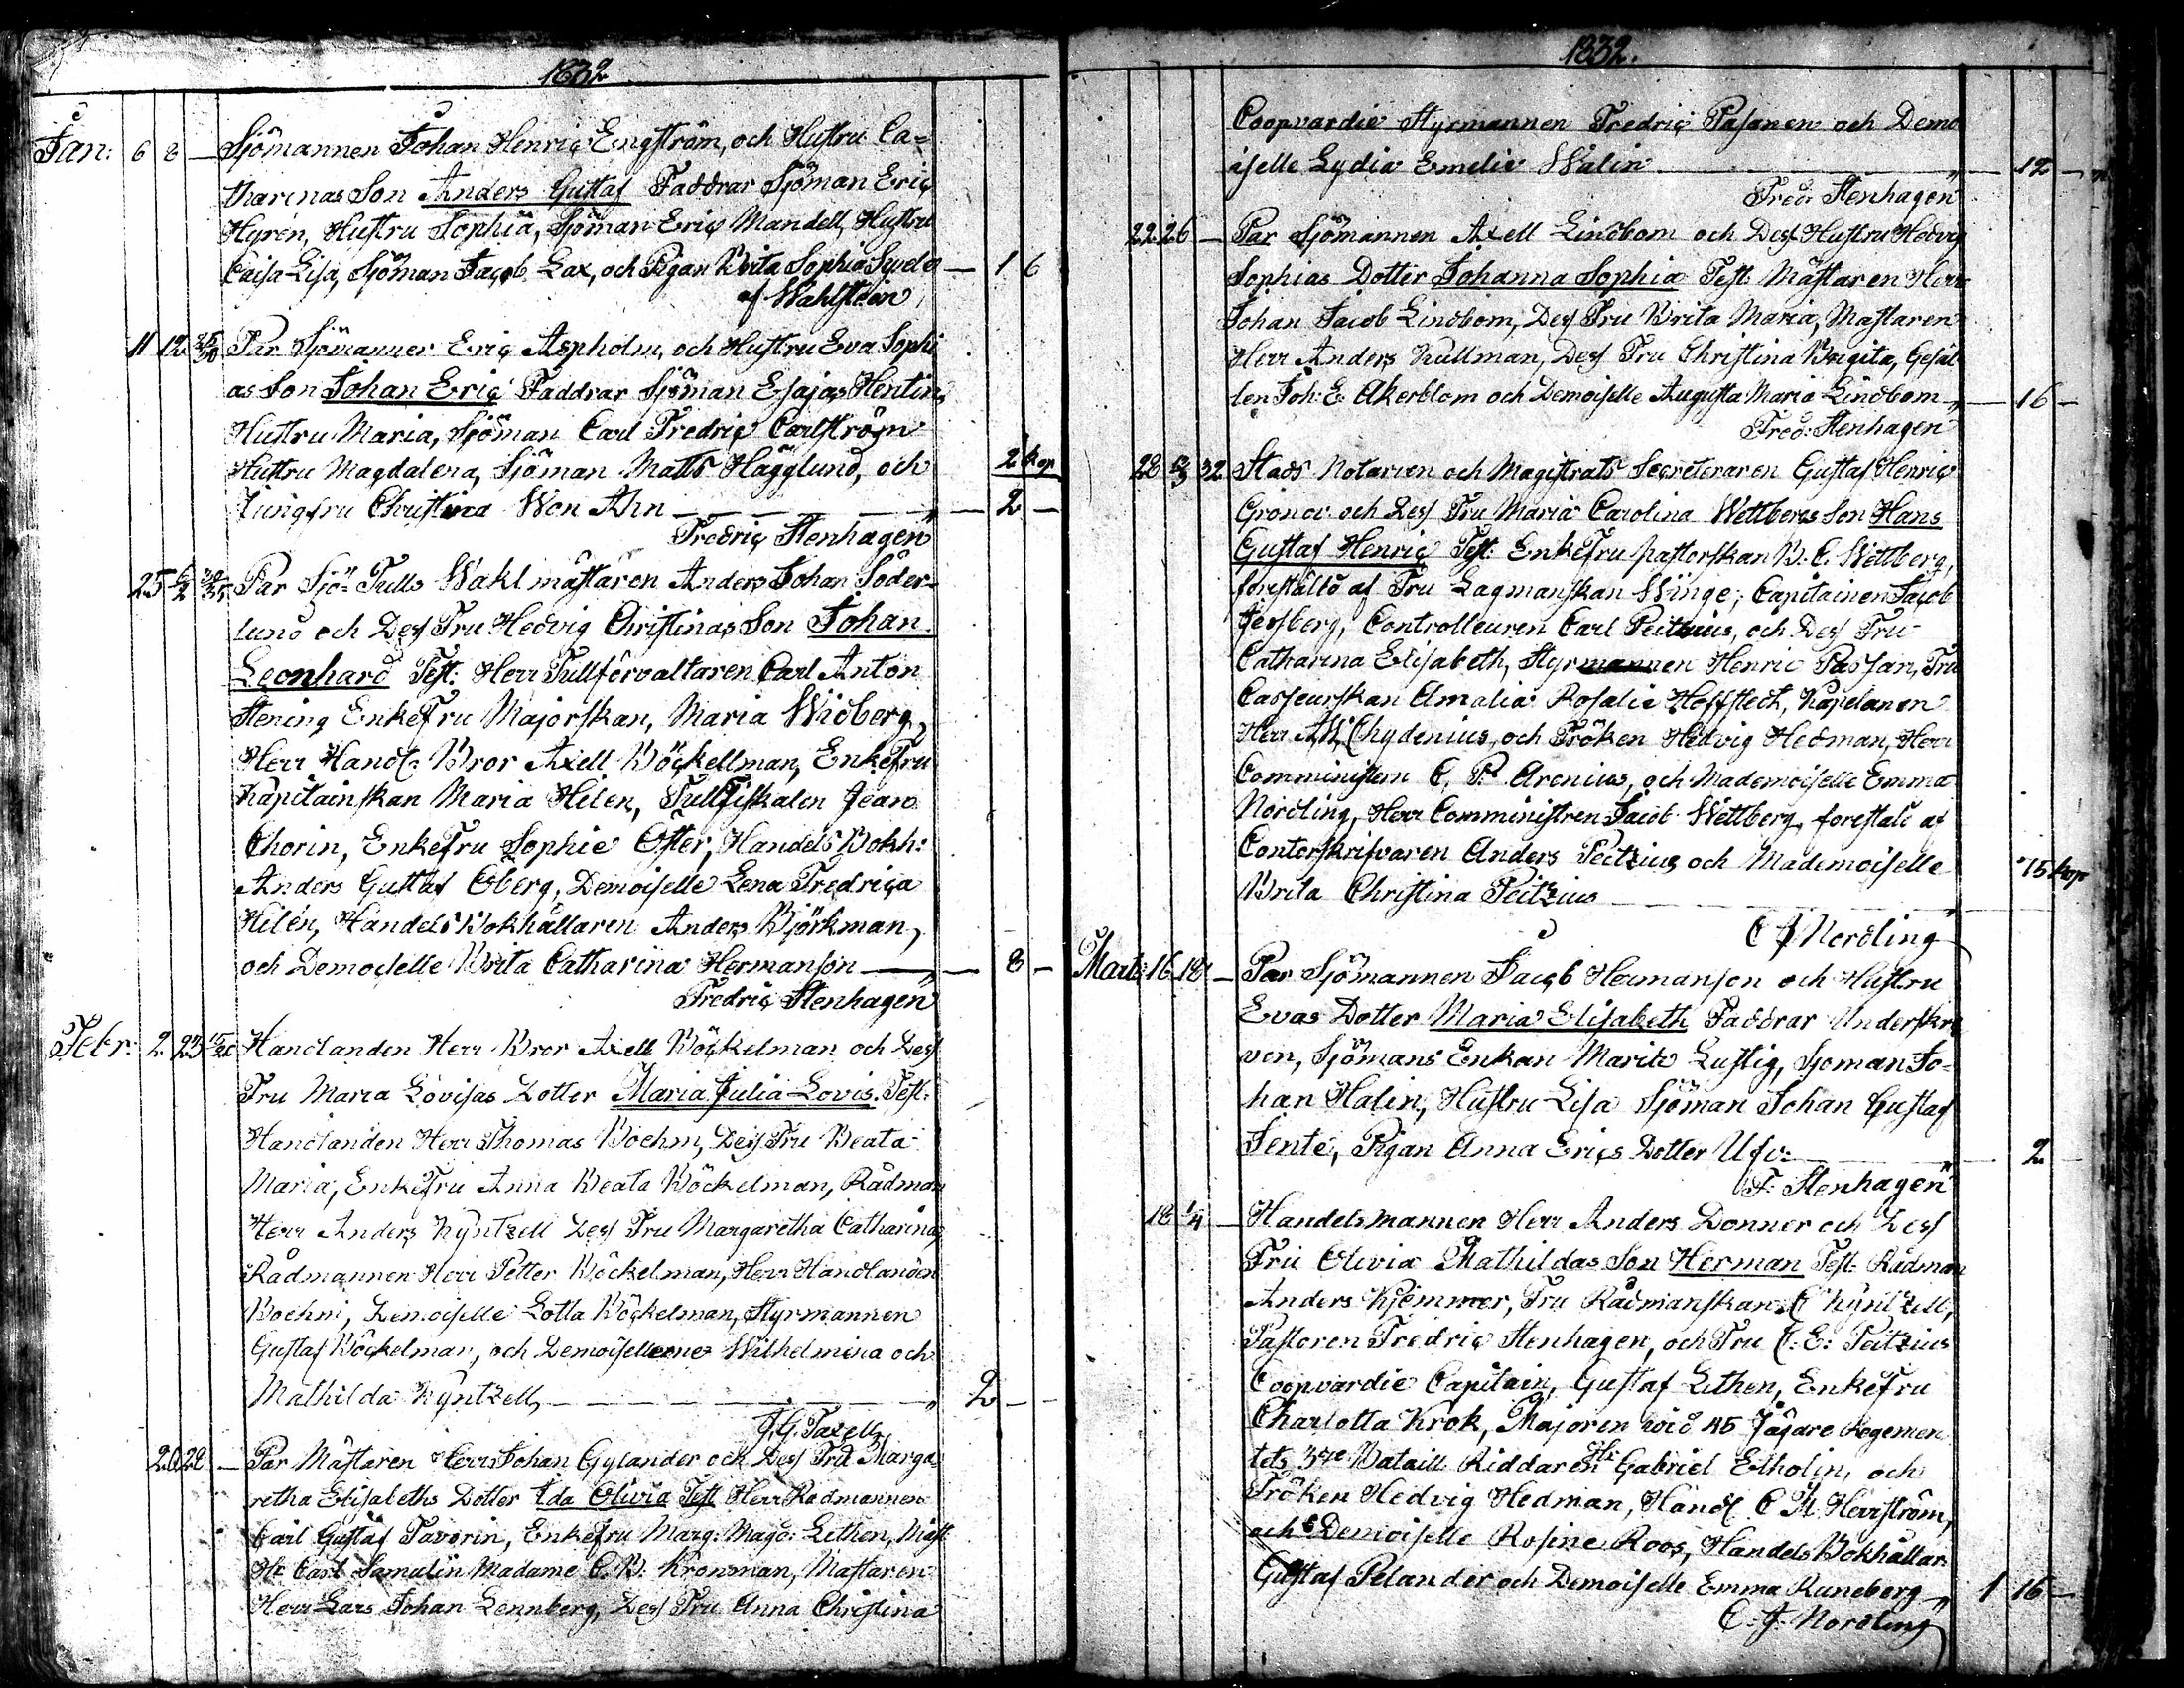 1832
Jan: 6 8 — Sjömannen Johan Henric Engström, och Hustru Ca=
tharinas Son Anders Gustaf Faddrar Sjöman Eric
Hyrén, Hustru Sophia, Sjöman Eric Mandell, Hustru
Caisa Lisa, Sjöman Jacob Lax, och Pigan Brita Sophia — 1 6
af Wahlstein
11 12 25/30 Par Sjömannen Eric Aspholm, och Hustru Eva Sophi
as Son Johan Eric Faddrar Sjöman Esajas Hentin,
Hustru Maria, Sjöman Carl Fredric Carlström
Hustru Magdalena, Sjöman Matts Hägglund, och 2 kop
Jungfru Christina Von Ahn — 2 —
Fredric Stenhagen
25 Par Sjö-Tulls Waktmästaren Anders Johan Söder-
lund och Dess Fru Hedvig Christinas Son Johan
Leonhard Test: Herr Tullförvaltaren Carl Anton
Stening EnkeFru Majorskan, Maria Widberg,
Herr Handl: Bror Axell Böckellman, EnkeFru
Kapitainskan Maria Hilen, Tullfiskalen Jean
Thorin, EnkeFru Sophie Öster, Handels Bokh:
Anders Gustaf Öberg, Demoiselle Lena Fredrica
Hilén, Handels Bokhållaren Anders Björkman,
och Demoiselle Brita Catharina Hermanson — 8 —
Fredric Stenhagen
Febr: 2 23 Handlanden Herr Bror Axell Böckelman och Dess
Fru Maria Lovisas Dotter Maria Julia Lovis. Test:
Handlanden Herr Thomas Boehm, Dess Fru Beata
Maria, EnkeFru Anna Beata Böckelman, Rådman
Herr Anders Kyntzell Dess Fru Margaretha Catharina,
Rådmannen Herr Petter Böckelman, Herr Handlanden
Boehm, Demoiselle Lotta Böckelman, Styrmannen
Gustaf Böckelman, och Demoisellerne Wilhelmina och
Mathilda Kyntzell, — 2 —
J. G. Taxell
20 28 — Par Mästaren Herr Johan Gylander och Dess Fru Marga
retha Elisabeths Dotter Ida Olivia Test Herr Rådmannen
Carl Gustaf Favorin, Enkefru Marg: Magd: Lithen, Mäst
Hr Carl Samulin Madame C. B. Kronman, Mästaren
Herr Lars Johan Lennberg, Dess Fru Anna Christina
1832.
Coopvardie Styrmannen Fredric Pasanen och Demo
iselle Lydia Emelie Walin — 12 —
Fred: Stenhagen
22 26 — Par Sjömannen Axell Lindbom och Dess Hustru Hedvig
Sophias Dotter Johanna Sophia Test: Mästaren Herr
Johan Jacob Lindbom, Dess Fru Brita Maria, Mästaren
Herr Anders Kullman, Dess Fru Christina Brigita, Gesäl
len Joh: E. Åkerblom och Demoiselle Augusta Maria Lindbom — 16 —
Fred: Stenhagen
28 32 Stads Notarien och Magistrats Secreteraren Gustaf Henric
Grönov och Dess Fru Maria Carolina Wettbergs Son Hans
Gustaf Henric Test: EnkeFru pastorskan B: C. Wettberg,
föreställd af Fru Lagmanskan Winge; Capitainen Jacob
Controlleuren Carl Peitzius, och Dess Fru
Catharina Elisabeth, Styrmannen Henric Passan, Fru
Casseurskan Amalia Rosalie Hoffstedt, Kapelanen
Herr AW Chydenius, och Fröken Hedvig Hedman, Herr
Comministern C. P. Arenius, och Mademoiselle Emma
Nordling, Herr Comministren Jacob Wettberg, forestald af
Contorskrifvaren Anders Peitzius, och Mademoiselle 15 kop
Brita Christina Peitzius —
C J Nordling
Marti 16 18 — Par Sjömannen Jacob Hermanson och Hustru
Evas Dotter Maria Elisabeth Faddrar Underskre
ven, Sjömans Enkan Marite Lustig, Sjöman Jo-
han Halin, Hustru Lisa Sjöman Johan Gustaf
Jente, Pigan Anna Erics Dotter — 2
F: Stenhagen
18 1/4 — Handelsmannen Herr Anders Donner och Dess
Fru Olivia Mathildas Son Herman Test: Rådman
Anders Kjemmer, Fru Rådmanskan C Kyntzell,
Pastoren Fredric Stenhagen, och Fru C: E: Peitzius
Coopvardie Capitain, Gustaf Lithen, EnkeFru
Charlotta Krok, Majoren wid 45 Jägare Regemen
tets 3dje Bataill: Riddaren Hr Gabriel Etholin, och
Fröken Hedvig Hedman, Handl C M Herrström,
och Demoiselle Rosine Roos, Handels Bokhållar:
Gustaf Pelander och Demoiselle Emma Runeberg — 1 16 —
C. J. Nordling